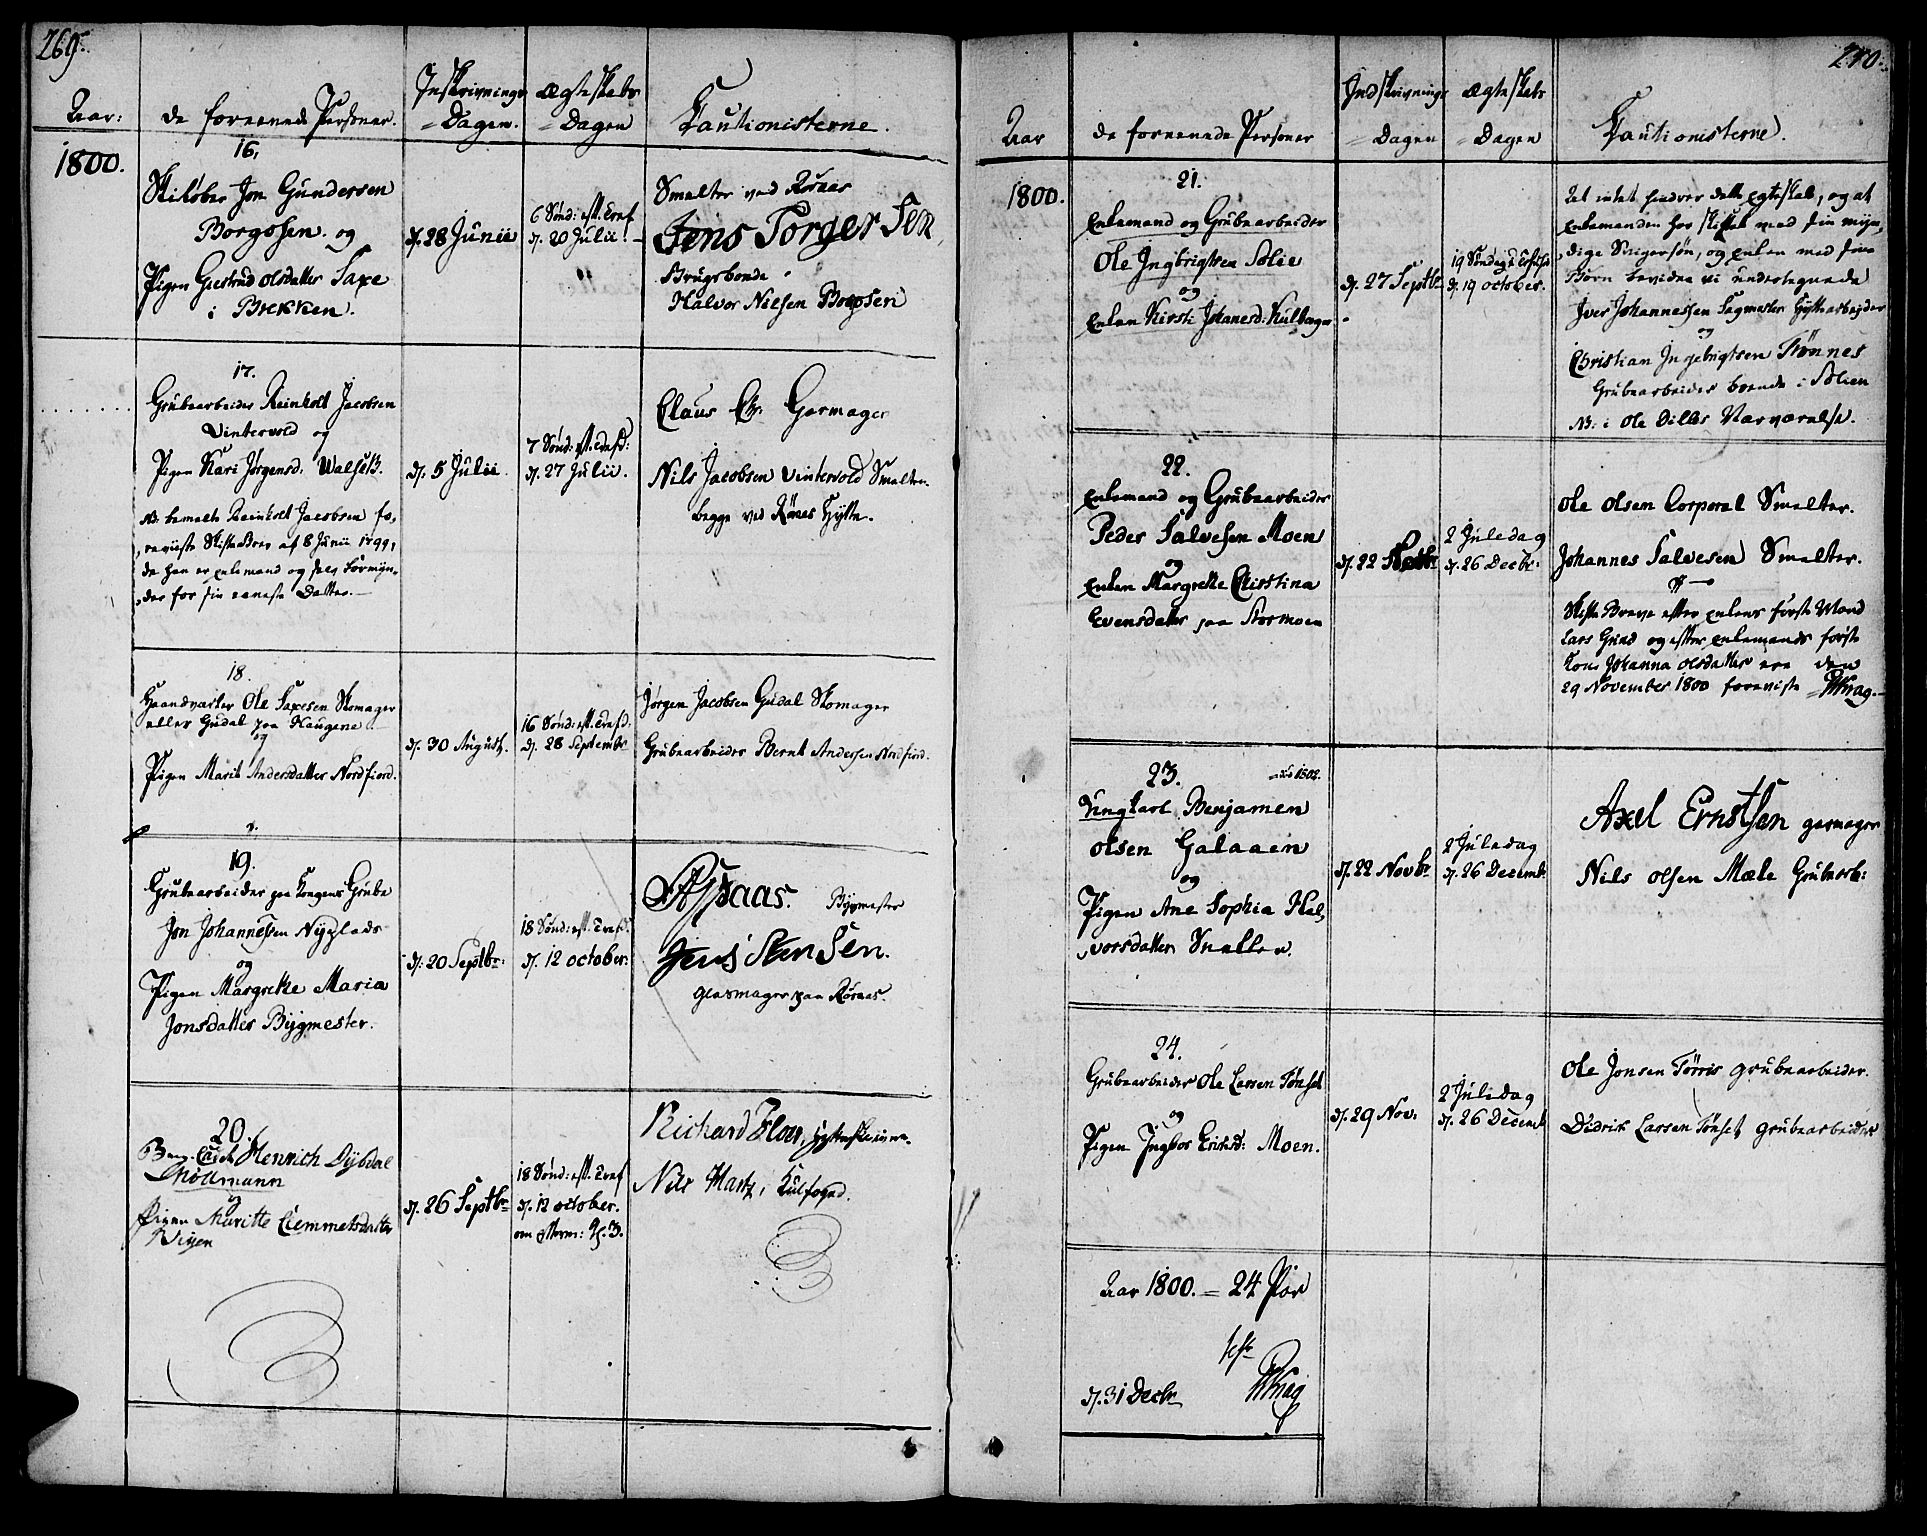 269.
Aar:
de foreenede Personer.
Inskrivnings
=Dagen.
Ægteskabs
=Dagen
Kautionisterne.
1800.
16.
Skiløber Jon Gundersen
Borgosen og
Pigen Giertrud Olsdatter Saxe
i Brekken.
d. 28 Junii
6 Sønd: eft. Tref
d. 20 Julii.
Smelter ved Røraas
Jens Torger Sen
Brugsbonde
Halvor Nielsen
17.
Grubearbeider Reinholt Jacobsen
Vintervold og
Pigen Kari Jørgensd. Walset.
NB. bemelte Reinholt Jacobsen fo-
reviste Skifte Brev af 8 Junii 1799,
da han er Enkemand og selv Formyn-
der for sin eeneste Datter.
d. 5 Julii.
7 Sønd: eft. Trefd:
d. 27 Julii.
Claus Chr. Garmager
Nils Jacobsen Vintervold Smelter.
begge ved Røraas Hytte.
18.
Haandverker Ole Saxesen Skomager
eller Gudal paa Haugene
og
Pigen Marit Andersdatter Nordfiord.
d. 30 August.
16 Sønd: eft. Trefd:
d. 28 Septembr
Jørgen Jacobsen Gudal Skomager
Grubearbeider Bernt Andersen Nordfiord.
19.
Grubearbeider paa Kongens Grube
Jon Johannessen Nyplads
og
Pigen Margrethe Maria
Jonsdatter Bygmester.
d. 20 Septbr:
18 Sønd: eft. Trefd.
d. 12 October:
Aasaas. Bygmester
Jens StenSen.
Glasmager paa Røraas.
20.
Henrich Dybdal
Møllmann
og
Pigen Maritte Clemmetsdatter
d. 26 Septbr
18 Sønd: eft. Tref
d. 12 October.
om efterm: Kl. 3.
Richard Floer, Hytteskriver.
Nils Hartz, Kulfoged.
270.
Aar
de foreenede Personer
Indskrivnings
=Dagen
Ægteskabs
=Dagen
Kautionisterne.
1800.
21.
Enkemand og Grubearbeider
Ole Ingbrigtsen Solie
og
Enken Kirsti Johanesd:
d. 27 Septbr
19 Søndag Trefold
d. 19 October.
At intet hindrer dette Egteskab, og at
Enkemanden har skiftet med sin myn-
dige Svigersøn, og Enken med sine
Børn bevidner vi undertegnede
Iver Johannessen Sagmester Hyttearbeider
og
Christian Ingebrigtsen Trønnes
Grubearbeider boende i Solien
NB. i Ole Dilles Nærværelse.
22.
Enkemand og Grubearbeider
Peder Salvesen Moen
og
Enken Margrethe Christina
Evensdatter paa Stormoen
d. 22
2 Juledag
d. 26 Decbr:
Ole Olsen Corporal Smelter.
Johannes Salvesen Smelter.
Skifte Breve efter Enkens første Mand
Lars Grind og efter Enkemands første
Kone Johanna Olsdatter ere den
29 November 1800 foreviste Krag.
23.
Ungkarl Benjamen
Olsen Galaaen
og
Pigen Ane Sophia Hal-
vorsdatter Sneller.
d. 22 Novbr
2 Juledag
d. 26 Decembr
Axel ErnstSen garmager
Nils Olsen Mæle Grubearb:
24.
Grubearbeider Ole Larsen Tønset
og
Pigen Ingbor Ericksd: Moen.
d. 29 Nov:
2 Juledag
d. 26 Decemb
Ole Jonsen Tørris grubearbeider.
Didrik Larsen Tønset grubearbeider
Aar 1800. = 24 Par
d. 31 Decbr
Krag